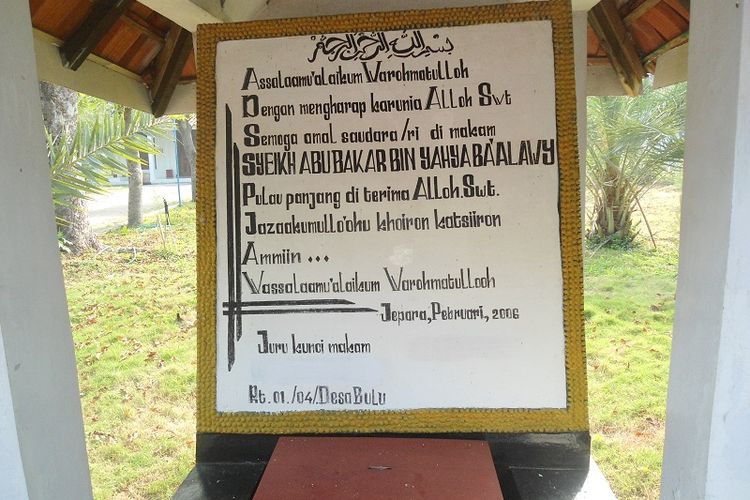 بسم الله الرحمن الرحيم
Assalaamu'alaikum Warohmatulloh
Dengan mengharap karunia Alloh Swt
Semoga amal saudara/ri di makam
SYEIKH ABU BAKAR BIN YAHYA BA'ALAWY
Pulau panjang di terima Alloh.Swt.
Jazaakumullo'ohu khoiron katsiiron
Ammiin ...
Wassalaamu'alaikum Warohmatullooh
Jepara, Pebruari, 2006
Juru kunci makam
Rt. 01./04/Desa Bulu